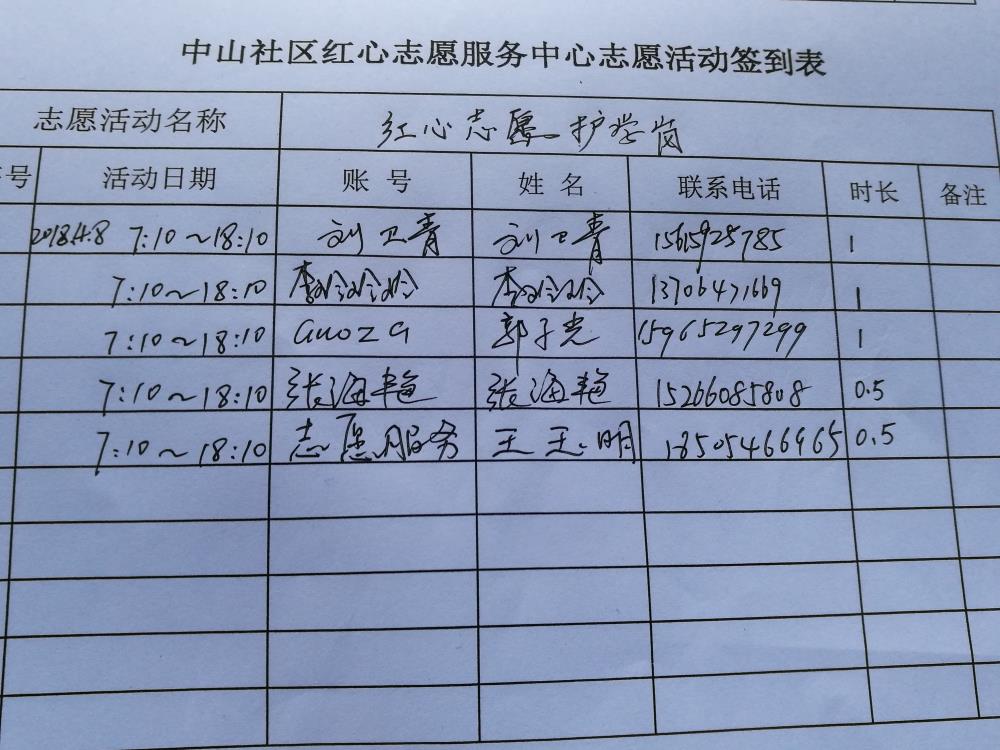 中山社区红心志愿服务中心志愿活动签到表
志愿活动名称 红心志愿 护学岗
号 活动日期 账号 姓名 联系电话 时长 备注
2018.4.8 7:10~18:10 刘卫青 刘卫青 15615925785 1
7:10~18:10 李玲玲玲 李玲玲 13706471669 1
7:10~18:10 GuoZG 郭子光 15965297299 1
7:10~18:10 张海艳 张海艳 15266085808 0.5
7:10~18:10 志愿服务 王玉明 18505466965 0.5